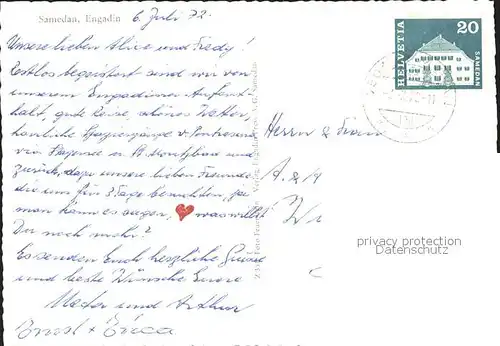 Samedan, Engadin 6. Juli 72.
HELVETIA 20 SAMEDAN
Unsere lieben Alice und Fredy!
Restlos begeistert sind wir von
unserem Engadiner Aufent-
halt, gute Reise, schönes Wetter,
herrliche Spaziergänge v. Pontresina
via Stazersee n. St. Moritzbad und
zurück, dazu unsere lieben Freunde
die uns für 3 Tage besuchten, ja
man kann es sagen, was willst
Du noch mehr?
Es senden Euch herzliche Grüsse
und beste Wünsche Eure
und Arthur
Ernst + Erica
Herrn &
A. &
privacy protection
Datenschutz